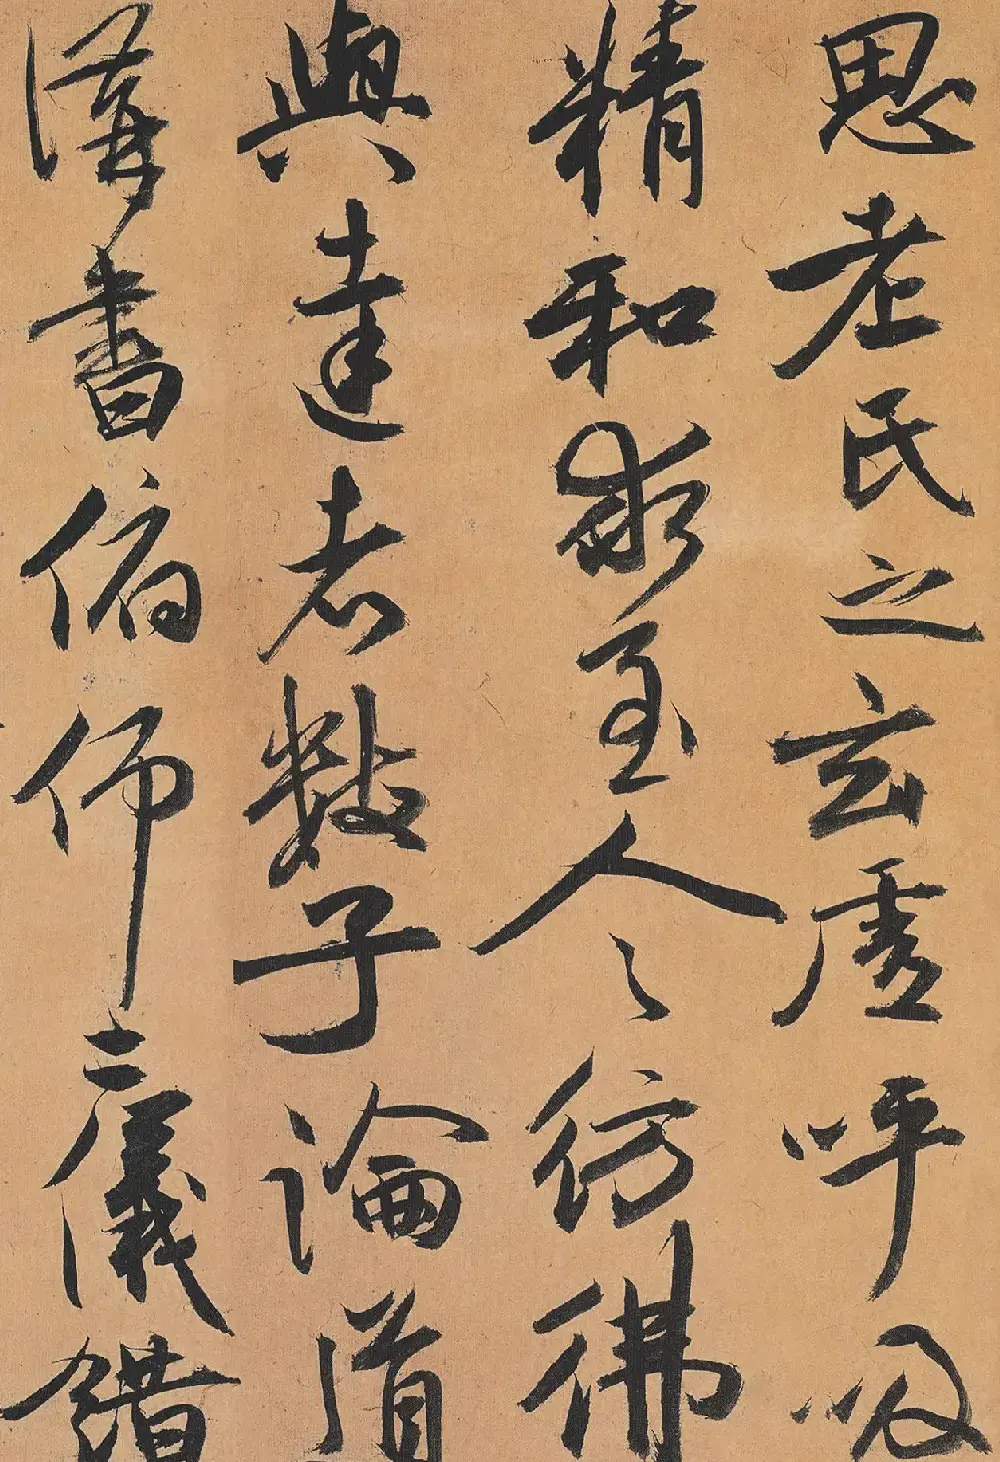 思老氏之玄虚呼吸
精和求至人彷佛
與達者數子論道
講書俯仰二儀錯